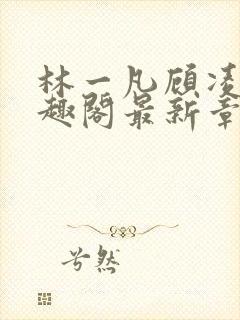 林一凡顾凌
趣阁最新章
兮然